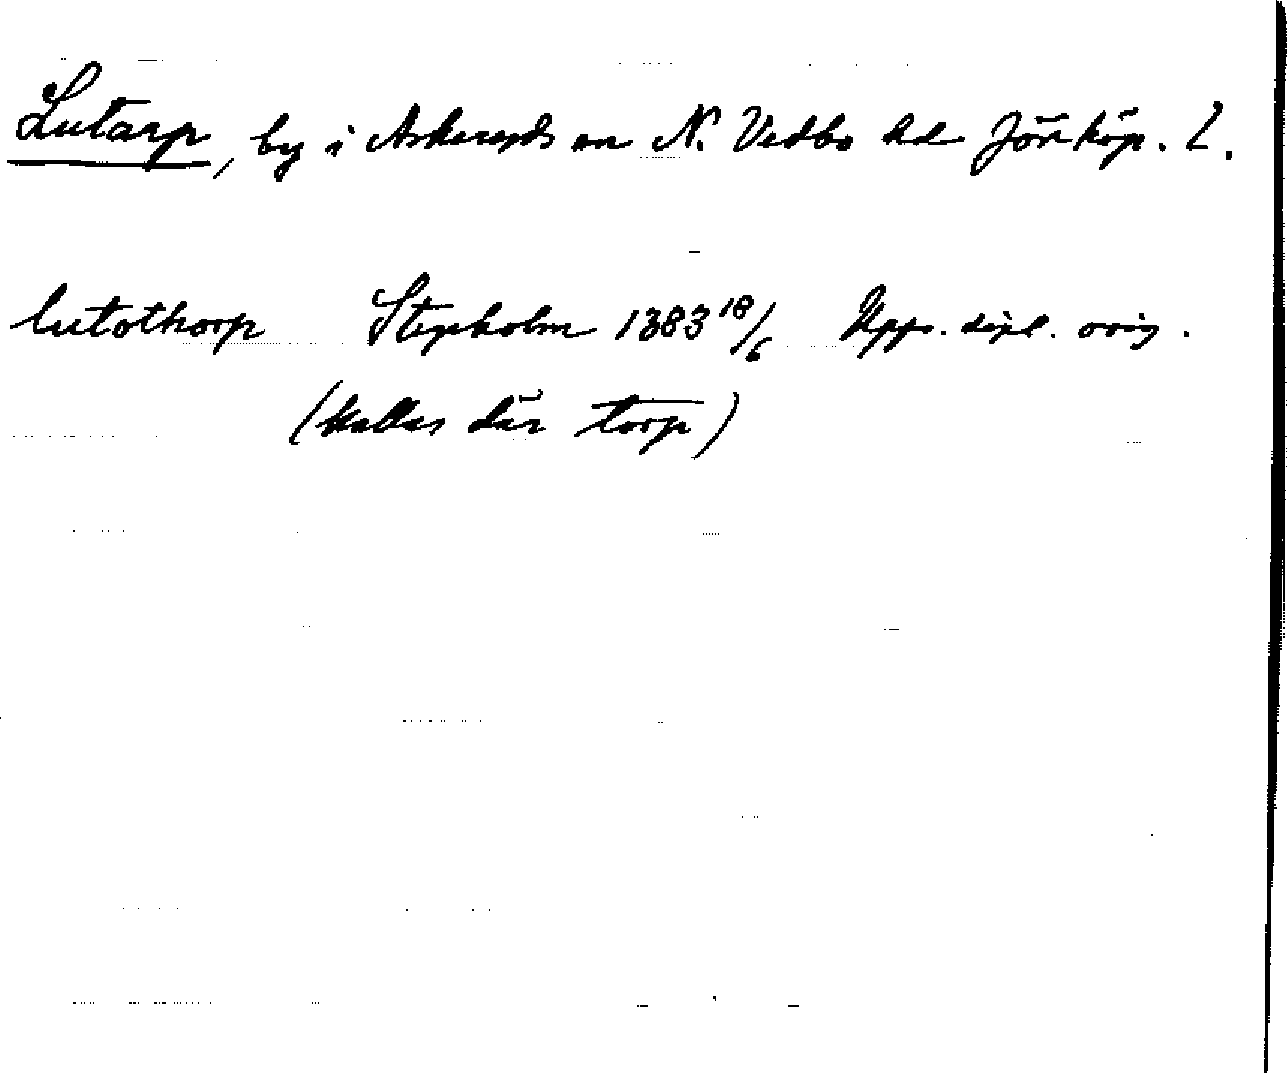 Lutarp, by i Askeryds sn N. Vedbo hd Jönköp. L.
lutothorp Stegeholm 1383 18/6 Upps. dipl. orig.
(kallas där torp)